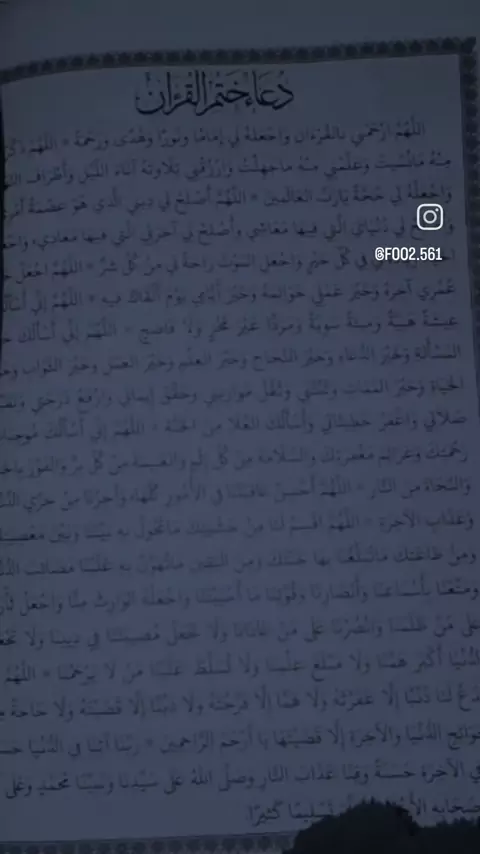 دُعَاءُ خَتْمِ الْقُرْآنِ
اللَّهُمَّ ارْحَمْنِي بِالْقُرْءَانِ وَاجْعَلْهُ لِي إِمَامًا وَنُورًا وَهُدًى وَرَحْمَةً * اللَّهُمَّ ذَكِّرْنِي
مِنْهُ مَا نُسِّيتُ وَعَلِّمْنِي مِنْهُ مَا جَهِلْتُ وَارْزُقْنِي تِلَاوَتَهُ آنَاءَ اللَّيْلِ وَأَطْرَافَ
وَاجْعَلْهُ لِي حُجَّةً يَا رَبَّ الْعَالَمِينَ * اللَّهُمَّ أَصْلِحْ لِي دِينِي الَّذِي هُوَ عِصْمَةُ أَمْرِي
لِي دُنْيَايَ الَّتِي فِيهَا مَعَاشِي وَأَصْلِحْ لِي آخِرَتِي الَّتِي فِيهَا مَعَادِي
@F002.561
فِي كُلِّ خَيْرٍ وَاجْعَلِ الْمَوْتَ رَاحَةً لِي مِنْ كُلِّ شَرٍّ * اللَّهُمَّ اجْعَلْ
عُمْرِي آخِرَهُ وَخَيْرَ عَمَلِي خَوَاتِمَهُ وَخَيْرَ أَيَّامِي يَوْمَ أَلْقَاكَ فِيهِ * اللَّهُمَّ إِنِّي
عِيشَةً هَنِيَّةً وَمِيتَةً سَوِيَّةً وَمَرَدًّا غَيْرَ مُخْزٍ وَلَا فَاضِحٍ * اللَّهُمَّ إِنِّي أَسْأَلُكَ
الْمَسْأَلَةِ وَخَيْرَ الدُّعَاءِ وَخَيْرَ النَّجَاحِ وَخَيْرَ الْعِلْمِ وَخَيْرَ الْعَمَلِ وَخَيْرَ الثَّوَابِ
الْحَيَاةِ وَخَيْرَ الْمَمَاتِ وَثَبِّتْنِي وَثَقِّلْ مَوَازِينِي وَحَقِّقْ إِيمَانِي وَارْفَعْ دَرَجَتِي
صَلَاتِي وَاغْفِرْ خَطِيئَاتِي وَأَسْأَلُكَ الْعُلَا مِنَ الْجَنَّةِ * اللَّهُمَّ إِنِّي أَسْأَلُكَ مُوجِبَاتِ
رَحْمَتِكَ وَعَزَائِمَ مَغْفِرَتِكَ وَالسَّلَامَةَ مِنْ كُلِّ إِثْمٍ وَالْغَنِيمَةَ مِنْ كُلِّ بِرٍّ وَالْفَوْزَ
وَالنَّجَاةَ مِنَ النَّارِ * اللَّهُمَّ أَحْسِنْ عَاقِبَتَنَا فِي الْأُمُورِ كُلِّهَا وَأَجِرْنَا مِنْ خِزْيِ
وَعَذَابِ الْآخِرَةِ * اللَّهُمَّ اقْسِمْ لَنَا مِنْ خَشْيَتِكَ مَا تَحُولُ بِهِ بَيْنَنَا وَبَيْنَ
وَمِنْ طَاعَتِكَ مَا تُبَلِّغُنَا بِهَا جَنَّتَكَ وَمِنَ الْيَقِينِ مَا تُهَوِّنُ بِهِ عَلَيْنَا مَصَائِبَ
وَمَتِّعْنَا بِأَسْمَاعِنَا وَأَبْصَارِنَا وَقُوَّتِنَا مَا أَحْيَيْتَنَا وَاجْعَلْهُ الْوَارِثَ مِنَّا وَاجْعَلْ
عَلَى مَنْ ظَلَمَنَا وَانْصُرْنَا عَلَى مَنْ عَادَانَا وَلَا تَجْعَلْ مُصِيبَتَنَا فِي دِينِنَا وَلَا
الدُّنْيَا أَكْبَرَ هَمِّنَا وَلَا مَبْلَغَ عِلْمِنَا وَلَا تُسَلِّطْ عَلَيْنَا مَنْ لَا يَرْحَمُنَا * اللَّهُمَّ
لَنَا ذَنْبًا إِلَّا غَفَرْتَهُ وَلَا هَمًّا إِلَّا فَرَّجْتَهُ وَلَا دَيْنًا إِلَّا قَضَيْتَهُ وَلَا حَاجَةً
حَوَائِجِ الدُّنْيَا وَالْآخِرَةِ إِلَّا قَضَيْتَهَا يَا أَرْحَمَ الرَّاحِمِينَ * رَبَّنَا آتِنَا فِي الدُّنْيَا
فِي الْآخِرَةِ حَسَنَةً وَقِنَا عَذَابَ النَّارِ وَصَلَّى اللهُ عَلَى سَيِّدِنَا وَنَبِيِّنَا مُحَمَّدٍ وَعَلَى
تَسْلِيمًا كَثِيرًا